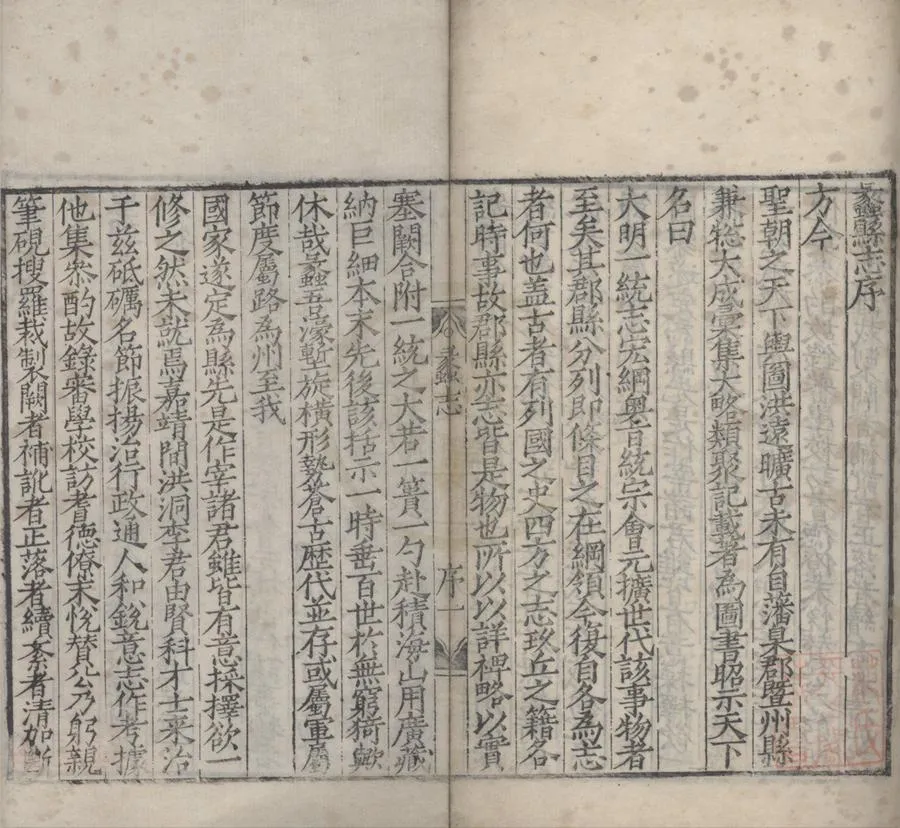 蠡縣志序
方今
聖朝之天下輿圖洪遠曠古未有自藩臬郡暨州縣
兼揔大成彙集大略類聚記載者為圖書昭示天下
名曰
大明一統志宏綱奧旨統宗會元擴世代該事物者
至矣其郡縣分列即條目之在綱領今復自各為志
者何也盖古者有列國之史四方之志玖丘之籍各
記時事故郡縣亦志皆是物也所以以詳裨略以實
蠡志
序一
塞闕合附一統之大若一簣一勺赴積海山用廣藏
納巨細本末先後該括示一時垂百世於無窮猗歟
休哉蠡吾濠塹旋橫形埶蒼古歴代並存或屬軍屬
節度屬路為州至我
國家遂定為縣先是作宰諸君雖皆有意採擇欲一
修之然未就焉嘉靖間洪洞李君由賢科才士来治
于兹砥礪名節振揚治行政通人和銳意志作考據
他集叅酌故錄審學校訪耆德僚末悅賛公乃躬親
筆硯搜羅裁製闕者補訛者正落者續紊者清加斷